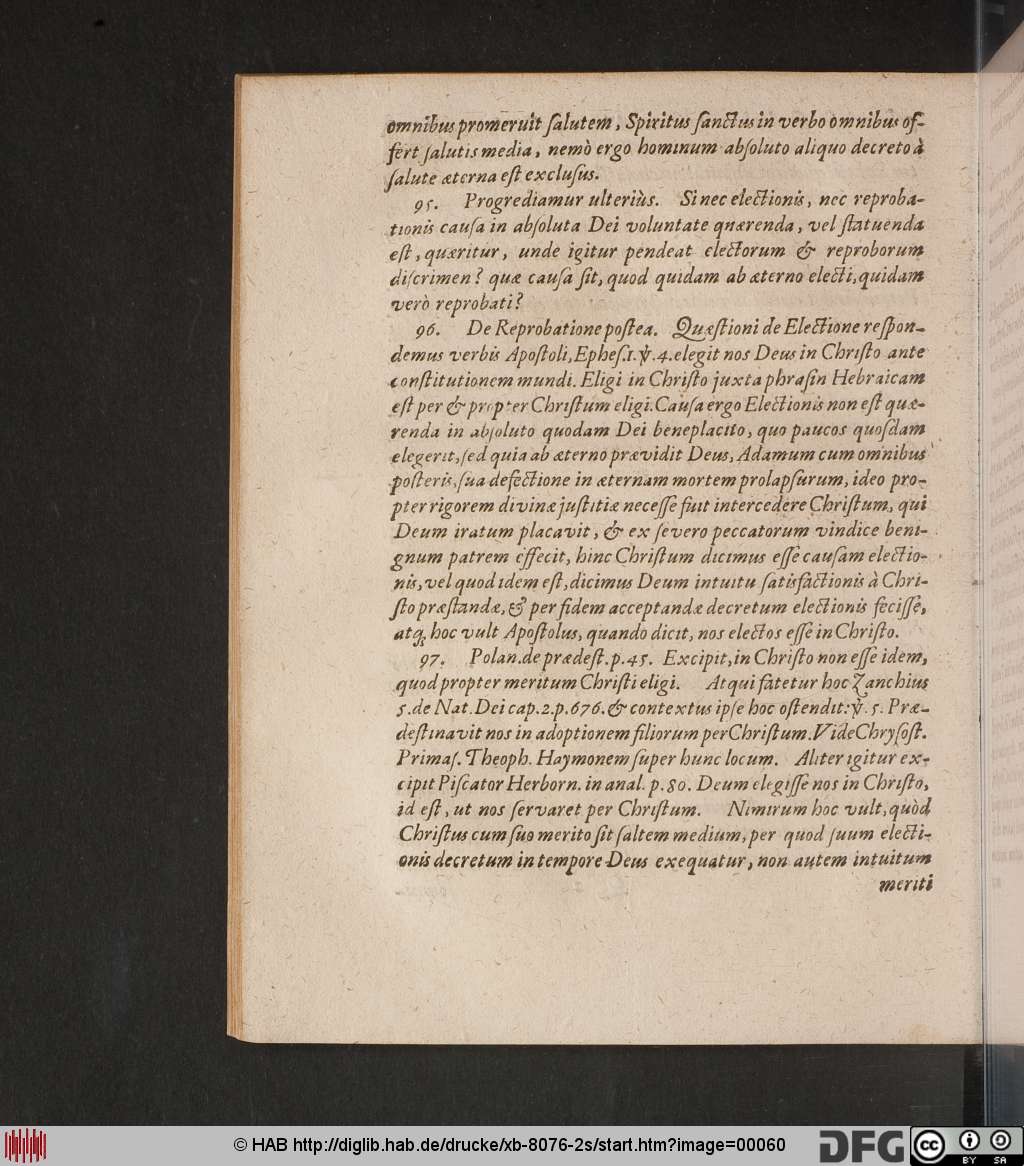 omnibus promeruit ſalutem, Spiritus ſanctus in verbo omnibus of-
fert ſalutis media, nemò ergo hominum abſoluto aliquo decreto à
ſalute æterna eſt excluſus.
95. Progrediamur ulteriùs. Si nec electionis, nec reproba-
tionis cauſa in abſoluta Dei voluntate quærenda, vel ſtatuenda
eſt, quæritur, unde igitur pendeat electorum & reproborum
diſcrimen? quæ cauſa ſit, quod quidam ab æterno electi, quidam
verò reprobati?
96. De Reprobatione poſtea. Quæſtioni de Electione reſpon-
demus verbis Apoſtoli, Epheſ.1. ℣.4. elegit nos Deus in Chriſto ante
conſtitutionem mundi. Eligi in Chriſto juxta phraſin Hebraicam
eſt per & propter Chriſtum eligi. Cauſa ergo Electionis non eſt quæ-
renda in abſoluto quodam Dei beneplacito, quo paucos quoſdam
elegerit, ſed quia ab æterno prævidit Deus, Adamum cum omnibus
poſteris, ſua defectione in æternam mortem prolapſurum, ideo pro-
pter rigorem divinæ juſtitiæ neceſſe fuit intercedere Chriſtum, qui
Deum iratum placavit, & ex ſevero peccatorum vindice beni-
gnum patrem effecit, hinc Chriſtum dicimus eſſe cauſam electio-
nis, vel quod idem eſt, dicimus Deum intuitu ſatisfactionis à Chri-
ſto præſtandæ, & per fidem acceptandæ decretum electionis feciſſe,
atq; hoc vult Apoſtolus, quando dicit, nos electos eſſe in Chriſto.
97. Polan. de prædeſt. p. 45. Excipit, in Chriſto non eſſe idem,
quod propter meritum Chriſti eligi. Atqui fatetur hoc Zanchius
5. de Nat. Dei cap. 2. p. 676. & contextus ipſe hoc oſtendit: ℣. 5. Præ-
deſtinavit nos in adoptionem filiorum per Chriſtum. Vide Chryſoſt.
Primaſ. Theoph. Haymonem ſuper hunc locum. Aliter igitur ex-
cipit Piſcator Herborn. in anal. p. 80. Deum elegiſſe nos in Chriſto,
id eſt, ut nos ſervaret per Chriſtum. Nimirum hoc vult, quòd
Chriſtus cum ſuo merito ſit ſaltem medium, per quod ſuum electi-
onis decretum in tempore Deus exequatur, non autem intuitum
meriti
© HAB http://diglib.hab.de/drucke/xb-8076-2s/start.htm?image=00060
DFG
cc BY SA